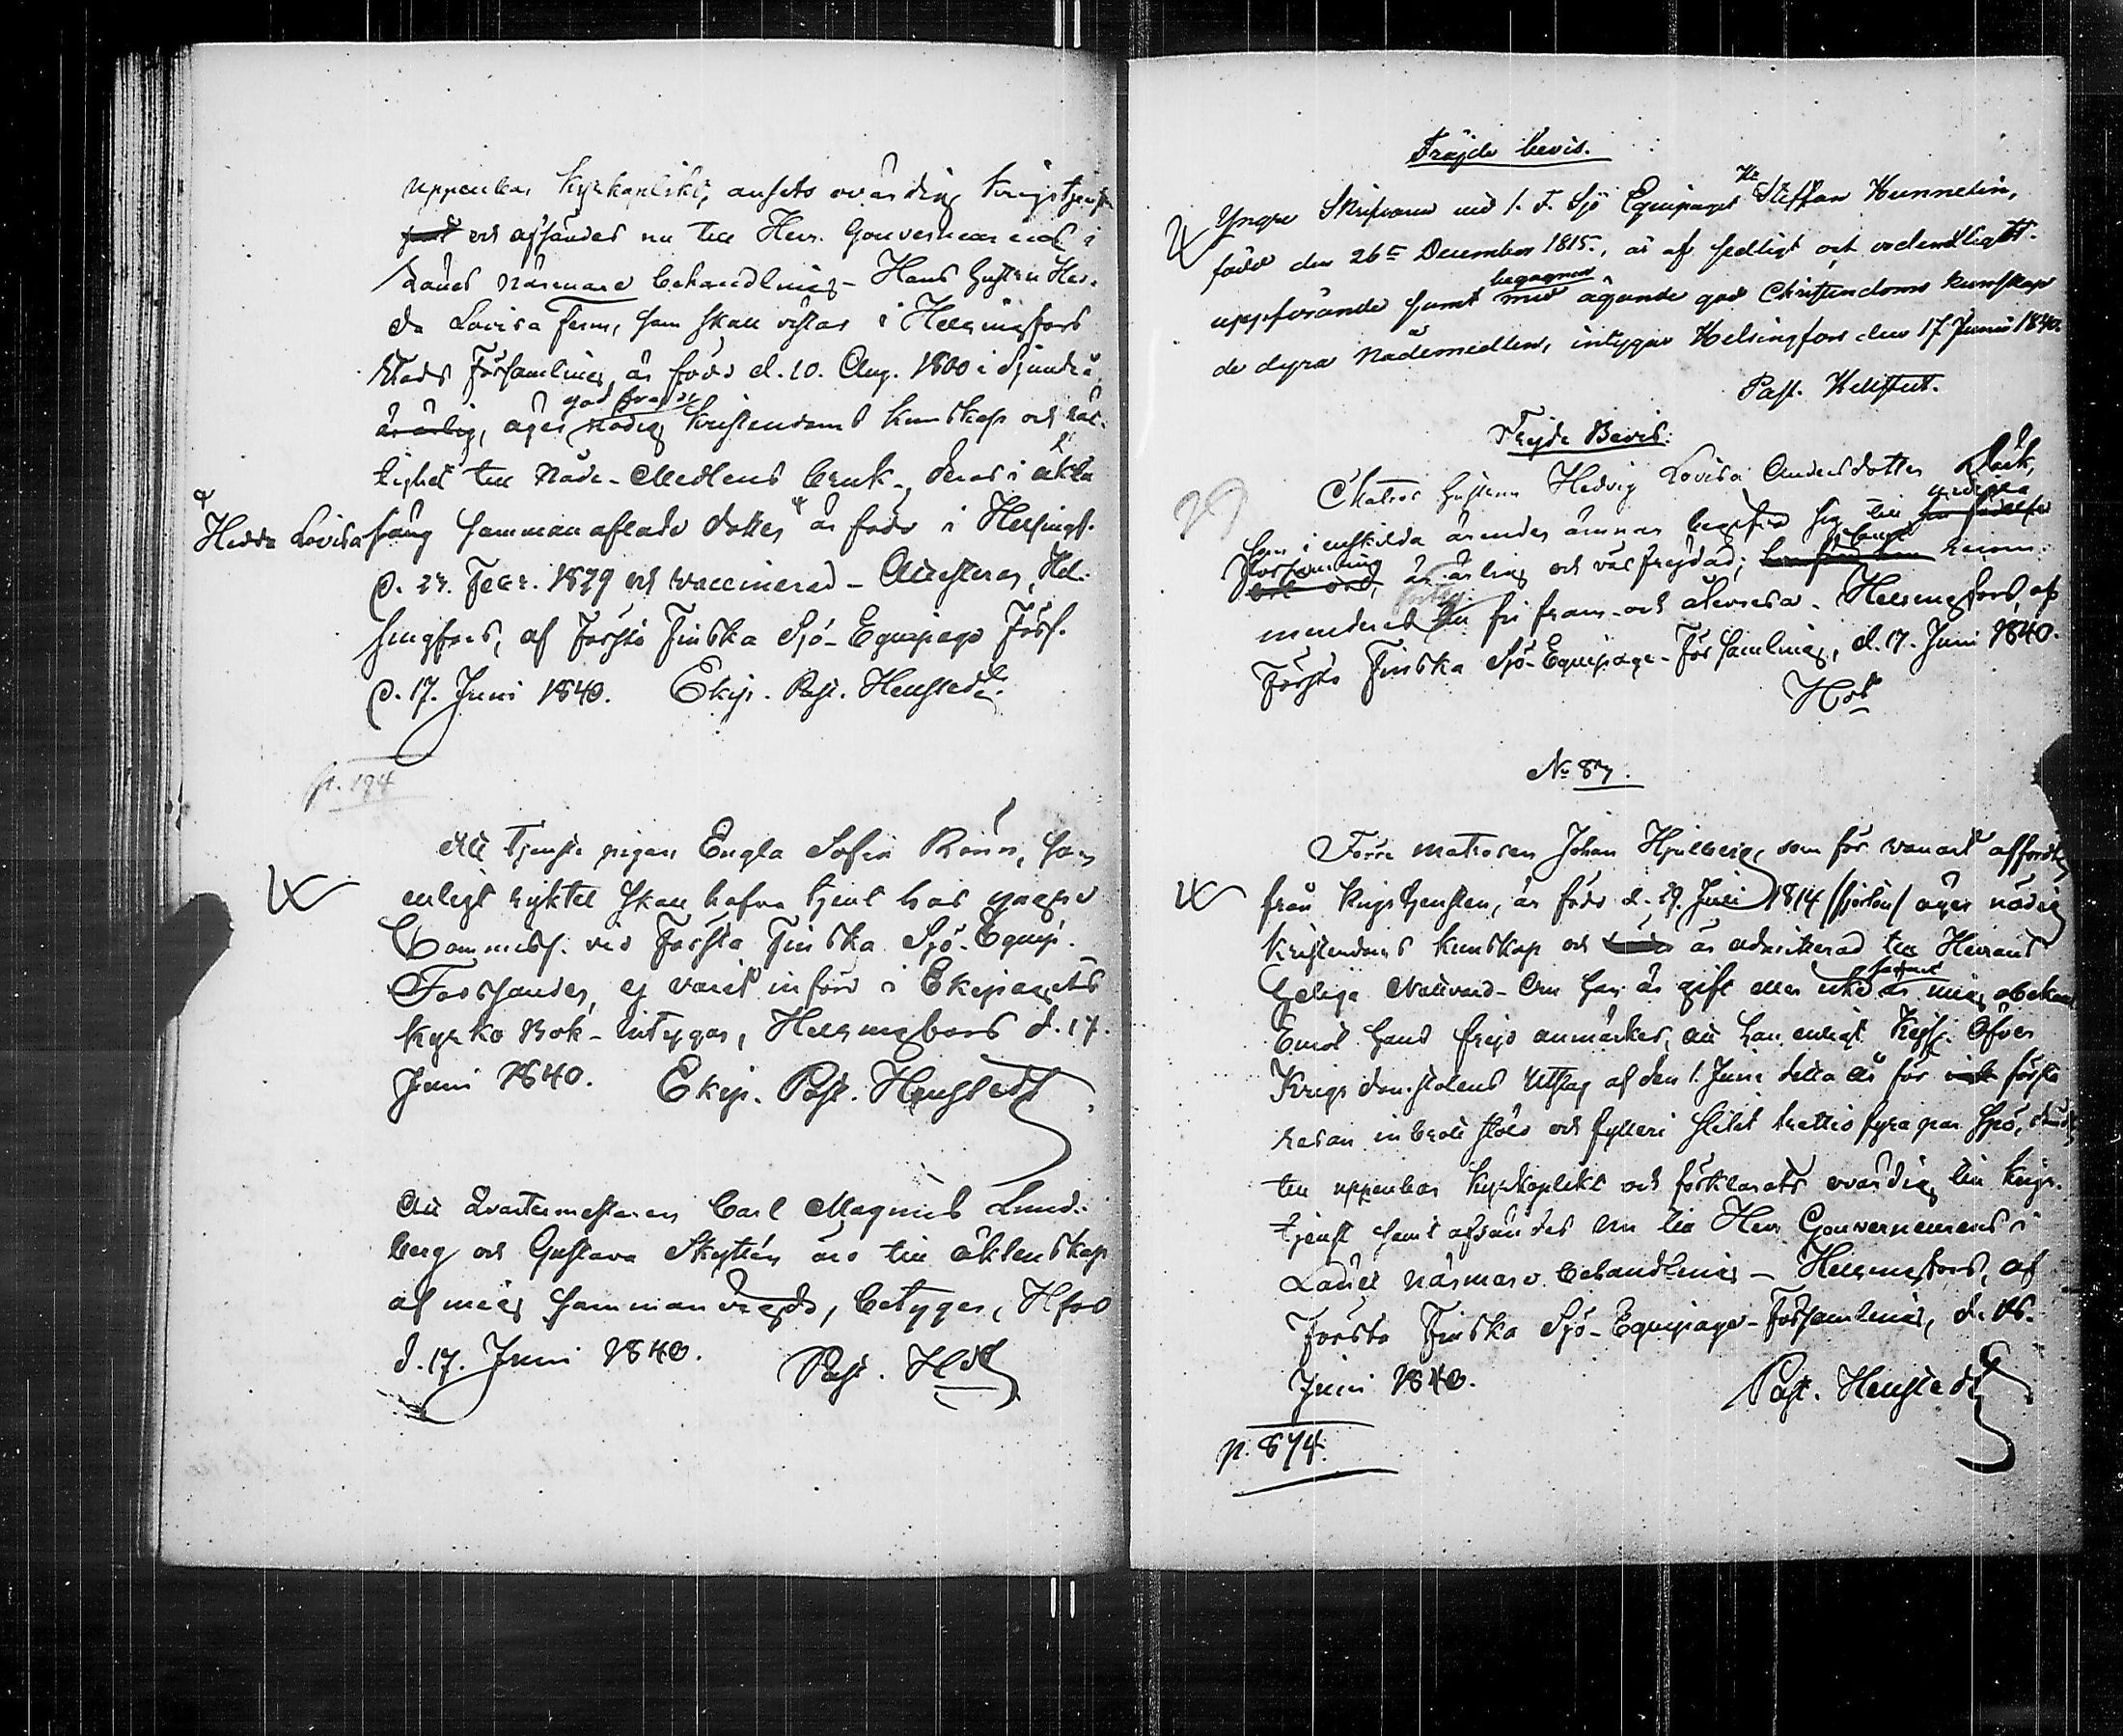 uppenbar kyrkoplikt, ansets ovärdig krigstjenst
och afsändes nu till Herr Gouverneurens i
Länet närmare behandling - Hans hustru Hed-
da Lovisa Ferm, som skall vistas i Helsingfors
Stads Församling, är född d. 10. Aug. 1800 i Sjundeå,
god frejd
är ärlig, äger nödig kristendoms kunskap och rät-
tighet till Nåde-Medlens bruk - deras i äkta
Hedda Lovisa
säng sammanaflade dotter är född i Helsingf.
d. 27. Febr. 1829 och vaccinerad - Attesteras, Hel-
singfors, af Första Finska Sjö-Equipage Förs.
d. 17. Juni 1840. Ekip. Past. Hellstedt.
p. 194
Att Tjenste pigan Engla Sofia Rönn, som
enligt ryktet skall hafva tjent hos yngre
Commiss. vid Första Finska Sjö-Equip.
Forssander, ej varit införd i Ekipagets
Kyrko Bok - intygar, Helsingfors d. 17.
Juni 1840. Ekip. Past. Hellstedt
Att Qvartermästaren Carl Magnus Lund-
berg och Gustava Skyttén äro till äktenskap
af mig sammanvigde, betygar, Hfors
d. 17. Juni 1840. Past. Hdt
Fräjde bevis.
Yngre Skrifvaren vid 1. F. Sjö Equipaget Hr Steffan Hunnelin,
född den 26te December 1815, är af sedligt och ordentligt
begagnar
uppförande samt med ägande god Christendoms kunskap
de dyra Nådemedlen, intygar Helsingfors den 17 Junii 1840.
Past. Hellstedt.
Frejde Bevis.
29
Matros hustrun Hedvig Lovisa Andersdotter
som i enskilda ärender ämnar begifva sig till
är ärlig och väl frejdad; recom-
menderas till fri fram- och återresa. Helsingfors, af
Första Finska Sjö-Equipage-Församling, d. 17. Juni 1840.
Hdt
No 87.
Förre matrosen Johan Hjulberg, som för vanart afförts
från krigstjensten, är född d. 29. Juli 1814 /fjorton/ äger nödig
kristendoms kunskap och är admitterad till Herrans
Heliga Nattvard - Om han är gift eller icke är mig obekant
Emot hans frejd anmärkes, att han enligt Kejs. Öfver
Krigs domstolens Utslag af den 1. Juni detta år för första
resan inbrott stöld och fylleri slitit trettio fyra par spö,
till uppenbar kyrkoplikt och förklarats ovärdig till krigs-
tjenst samt afsändes nu till Herr Gouverneurens i
Länet närmare behandling - Helsingfors, af
Första Finska Sjö-Equipage-Församling, d. 18.
Juni 1840. Past. Hellstedt
p. 874.